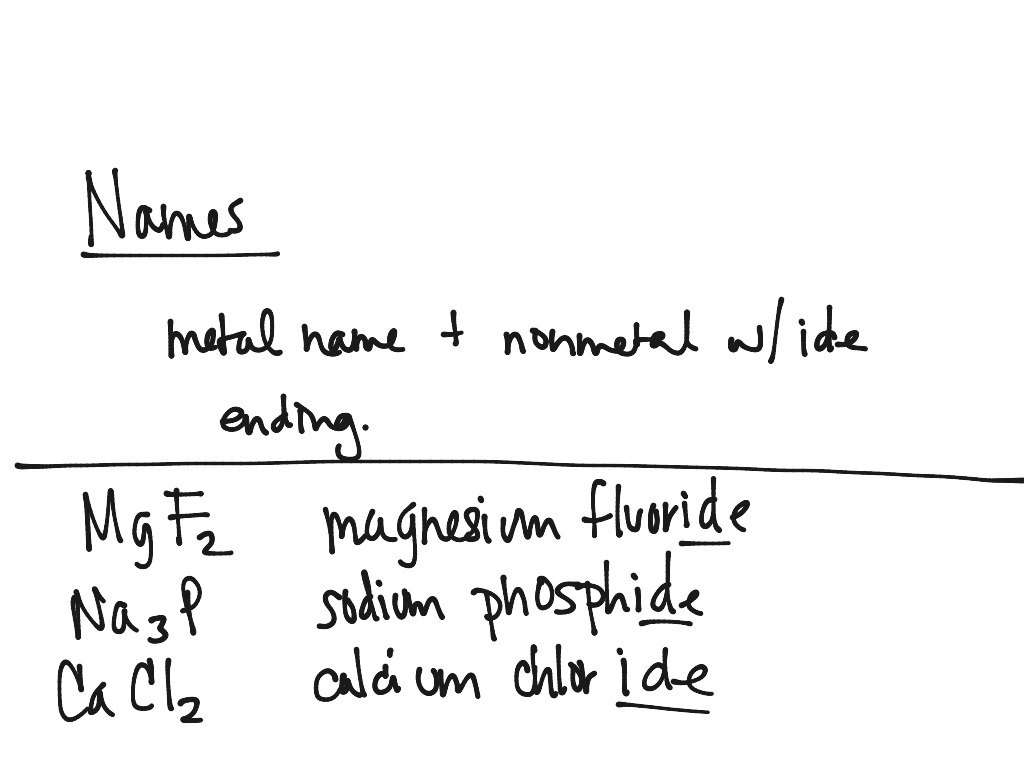 Names
metal name + nonmetal w/ ide
ending.
MgF₂ magnesium fluoride
Na₃P sodium phosphide
CaCl₂ calcium chloride